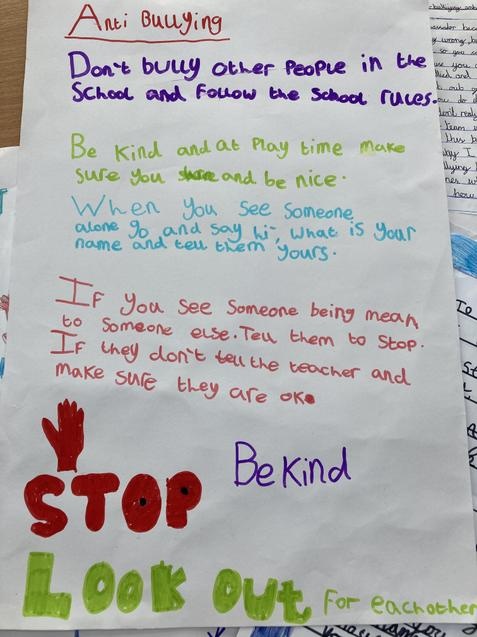 Anti Bullying
Don't bully other People in the
School and Follow the School rules.
Be Kind and at Play time make
sure you share and be nice.
When you see someone
alone go and say hi, what is your
name and tell them yours.
If you see someone being mean
to someone else. Tell them to Stop.
If they don't tell the teacher and
make sure they are ok.
STOP
Be Kind
Look Out For eachother